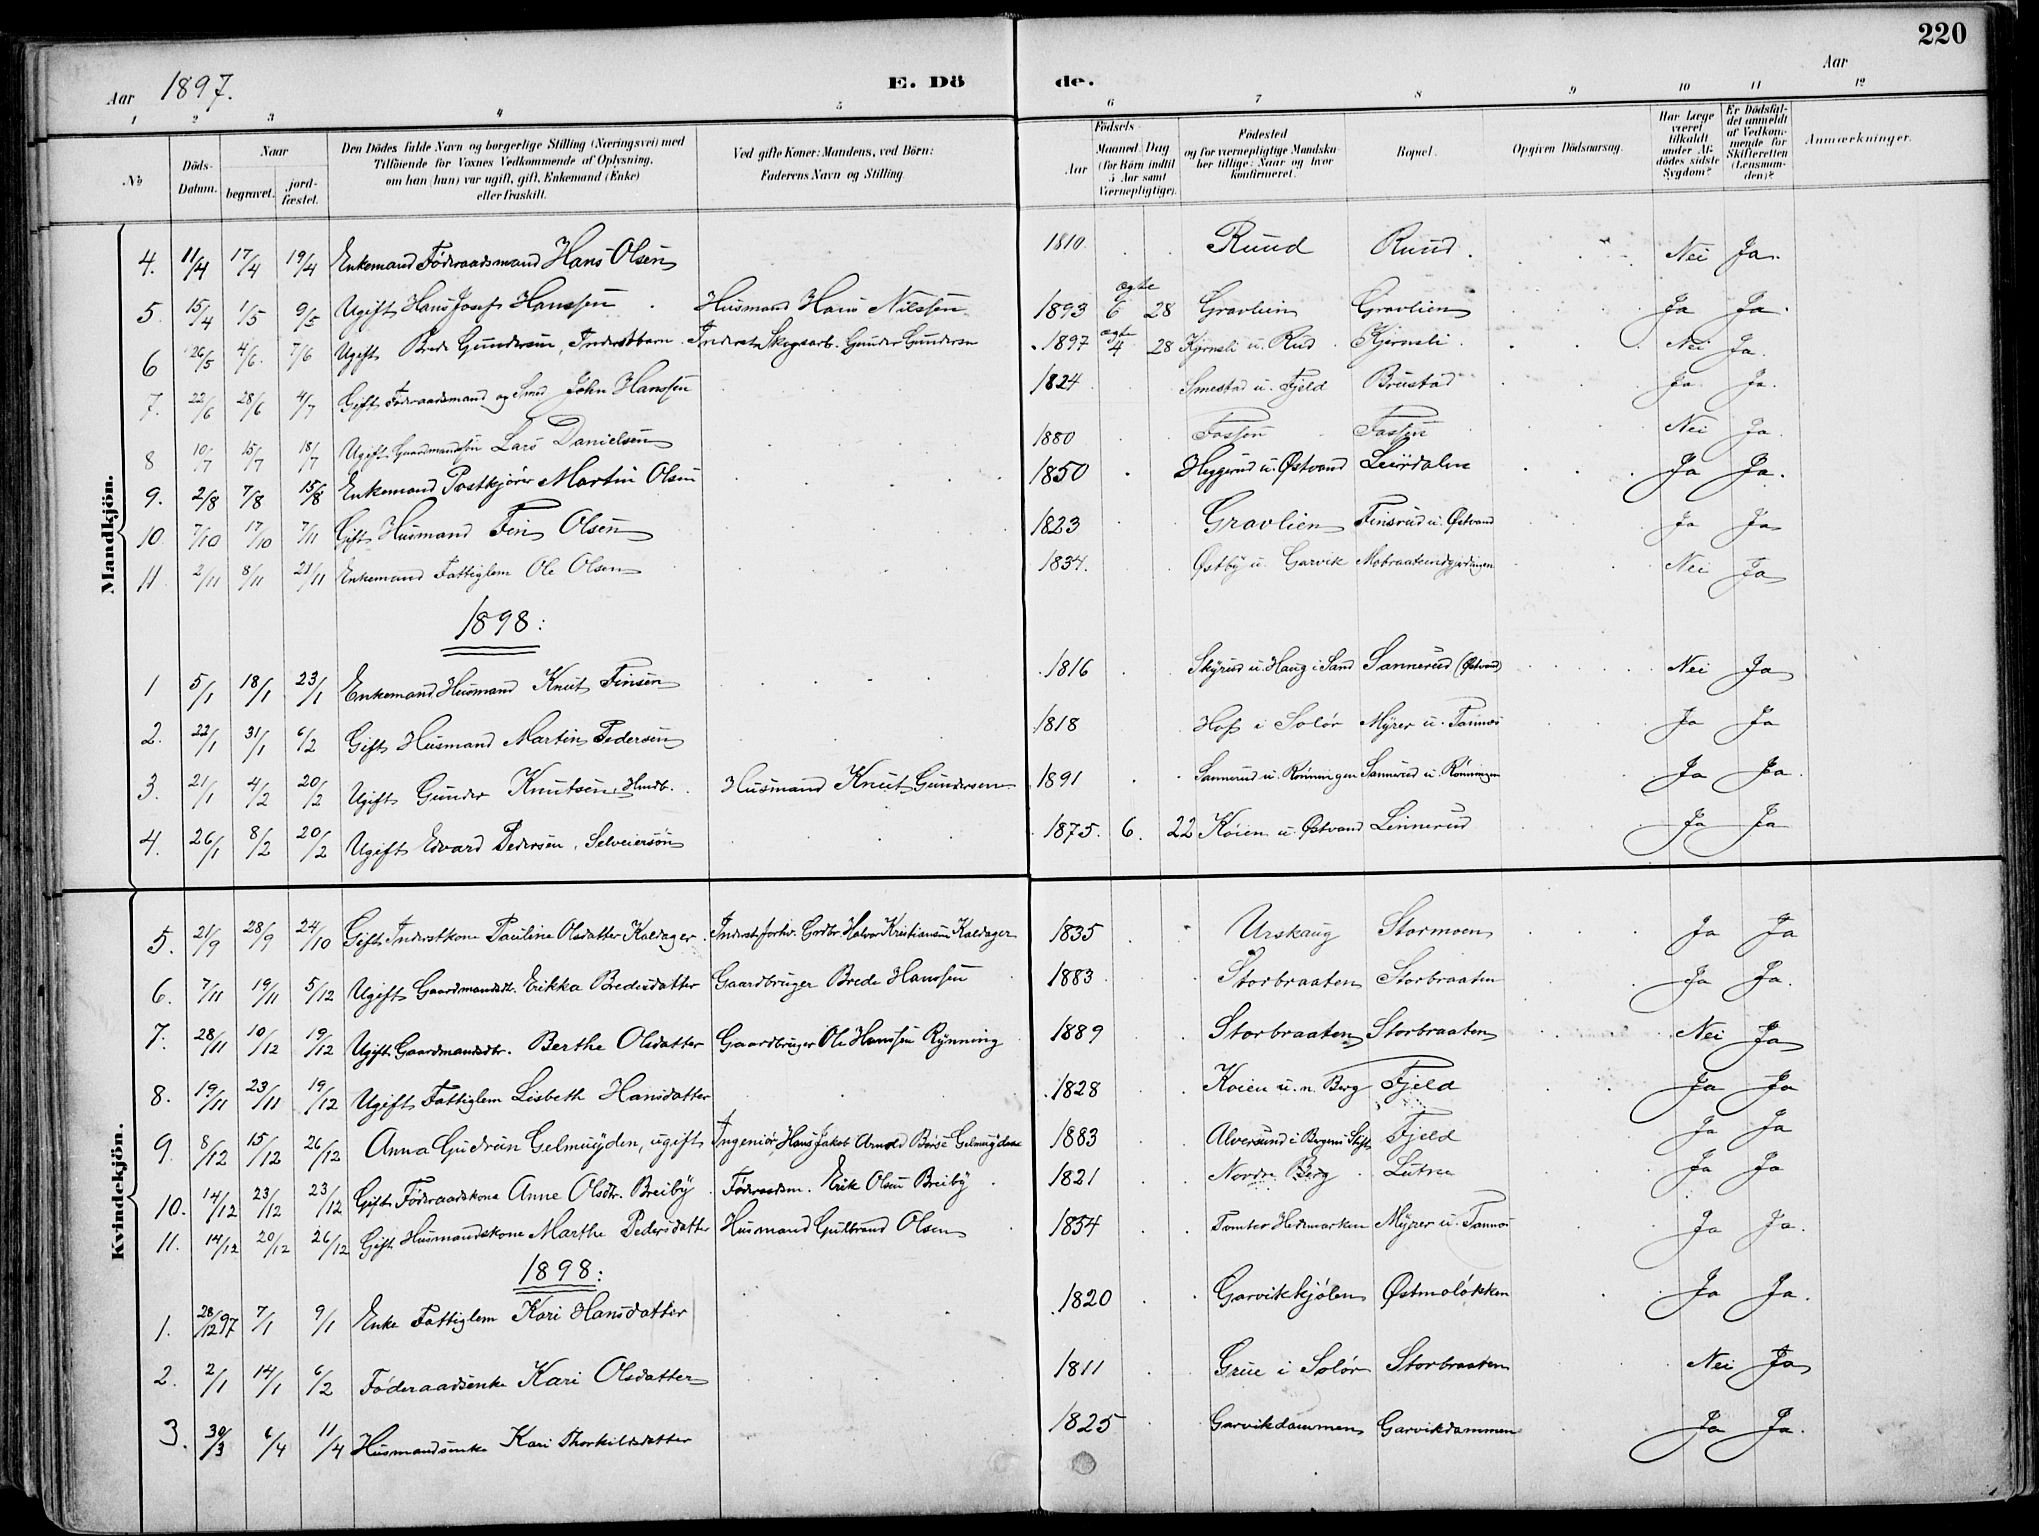 220
Aar 1897.
E. Döde.
Aar
1 2 3 4 5 6 7 8 9 10 11 12
No
Döds-Datum.
Naar
begravet.
jord-fæstet.
Den Dödes fulde Navn og borgerlige Stilling (Næringsvei) med Tilföiende for Voxnes Vedkommende af Oplysning, om han (hun) var ugift, gift, Enkemand (Enke) eller fraskilt.
Ved gifte Koner: Mandens, ved Börn: Faderens Navn og Stilling.
Födsels-
Aar
Maaned. Dag
(for Börn indtil 5 Aar samt Værnepligtige).
Födested og for værnepligtige Mandskaber tillige: Naar og hvor konfirmeret.
Bopæl.
Opgiven Dödsaarsag.
Har Læge været tilkaldt under Afdödes sidste Sygdom?
Er Dödsfaldet anmeldt af Vedkommende for Skifteretten (Lensmanden)?
Anmærkninger.
Mandkjön.
4. 11/4 17/4 19/4 Enkemand Föderaadsmand Hans Olsen 1810 Ruud Ruud Nei Ja.
5. 15/4 1/5 9/5 Ugift Hans Josef Hanssen Husmand Hans Nilssen 1893 ægte 6 28 Gravlien Gravlien Ja Ja.
6 26/5 4/6 7/6 Ugift Brede Gundersen, Inderstbarn Inderst Skogsarb. Gunder Gundersen 1897 ægte 4 28 Kjernsli u. Rud Kjernsli Nei Ja.
7. 22/6 28/6 4/7 Gift Föderaadsmand og Smed John Hanssen 1824 Smestad u. Fjeld Brustad Ja Ja.
8 10/7 15/7 18/7 Ugift Gaardmandssön Lars Danielsen 1880 Fossen Fossen Nei Ja
9. 2/8 7/8 15/8 Enkemand Postkjörer Martin Olsen 1850 Heggerud u. Østvand Leirdalen Ja Ja.
10 7/10 17/10 7/11 Gift Husmand Fin Olsen 1823 Gravlien Finsrud u. Østvand Ja Ja
11 2/11 8/11 21/11 Enkemand Fattiglem Ole Olsen 1834. Østby u. Garvik Mobraateindgjerdingen Nei Ja
1898:
1 5/1 18/1 23/1 Enkemand Husmand Knut Finsen 1816 Skyrud u. Haug i Sand Sannerud (Østvand) Nei Ja
2. 22/1 31/1 6/2 Gift Husmand Martin Pedersen 1818 Hof i Solör Myrer u. Tannæs Ja Ja
3. 21/1 4/2 20/2 Ugift Gunder Knutsen, Husmdb. Husmand Knut Gundersen 1891 Sannerud u. Rönningen Sannerud u. Rönningen Ja Ja.
4. 26/1 8/2 20/2 Ugift Edvard Pedersen, Selveiersön 1875. 6. 22 Köien u. Østvand Linnerud Ja Ja
Kvindekjön.
5. 21/9 28/9 24/10 Gift Inderstkone Pauline Olsdatter Kaldager Inderst forhv. Grdbr. Halvor Kristiansen Kaldager 1835 Urskaug Stormoen Ja Ja
6. 7/11 19/11 5/12 Ugift Gaardmandsdt. Erikka Bredesdatter Gaardbruger Brede Hanssen 1883 Storbraaten Storbraaten Ja Ja.
7. 28/11 10/12 19/12 Ugift Gaardmandsdtr. Berthe Olsdatter Gaardbruger Ole Hanssen Rynning 1889 Storbraaten Storbraaten Nei Ja
8. 19/11 23/11 19/12 Ugift Fattiglem Lisbeth Hansdatter 1828 Koien u. n. Berg Fjeld Ja Ja
9. 8/12 15/12 26/12 Anna Gudrun Gelmuyden, ugift Ingeniör, Hans Jakob Arnold Börse Gelmuyden 1883 Alversund i Bergens Stift Fjeld Ja Ja
10. 14/12 23/12 23/12 Gift Föderaadskone Anne Olsdtr. Breiby Föderaadsm. Erik Olsen Breiby 1821 Nordre Berg Lutne Ja Ja
11. 14/12 20/12 26/12 Gift Husmandskone Marthe Pedersdatter Husmand Gulbrand Olsen 1834 Tomter Hedemarken Myrer u. Tannæs Ja Ja.
1898:
1. 28/12 97 7/1 9/1 Enke Fattiglem Kari Hansdatter 1820 Garvikkjölen Østmoløkken Ja Ja.
2. 2/1 14/1 6/2 Föderaadsenke Kari Olsdatter 1811 Grue i Solör Storbraaten Nei Ja
3. 30/3 6/4 11/4 Husmandsenke Kari Thorkildsdatter 1825 Garvikdammen Garvikdammen Ja Ja.